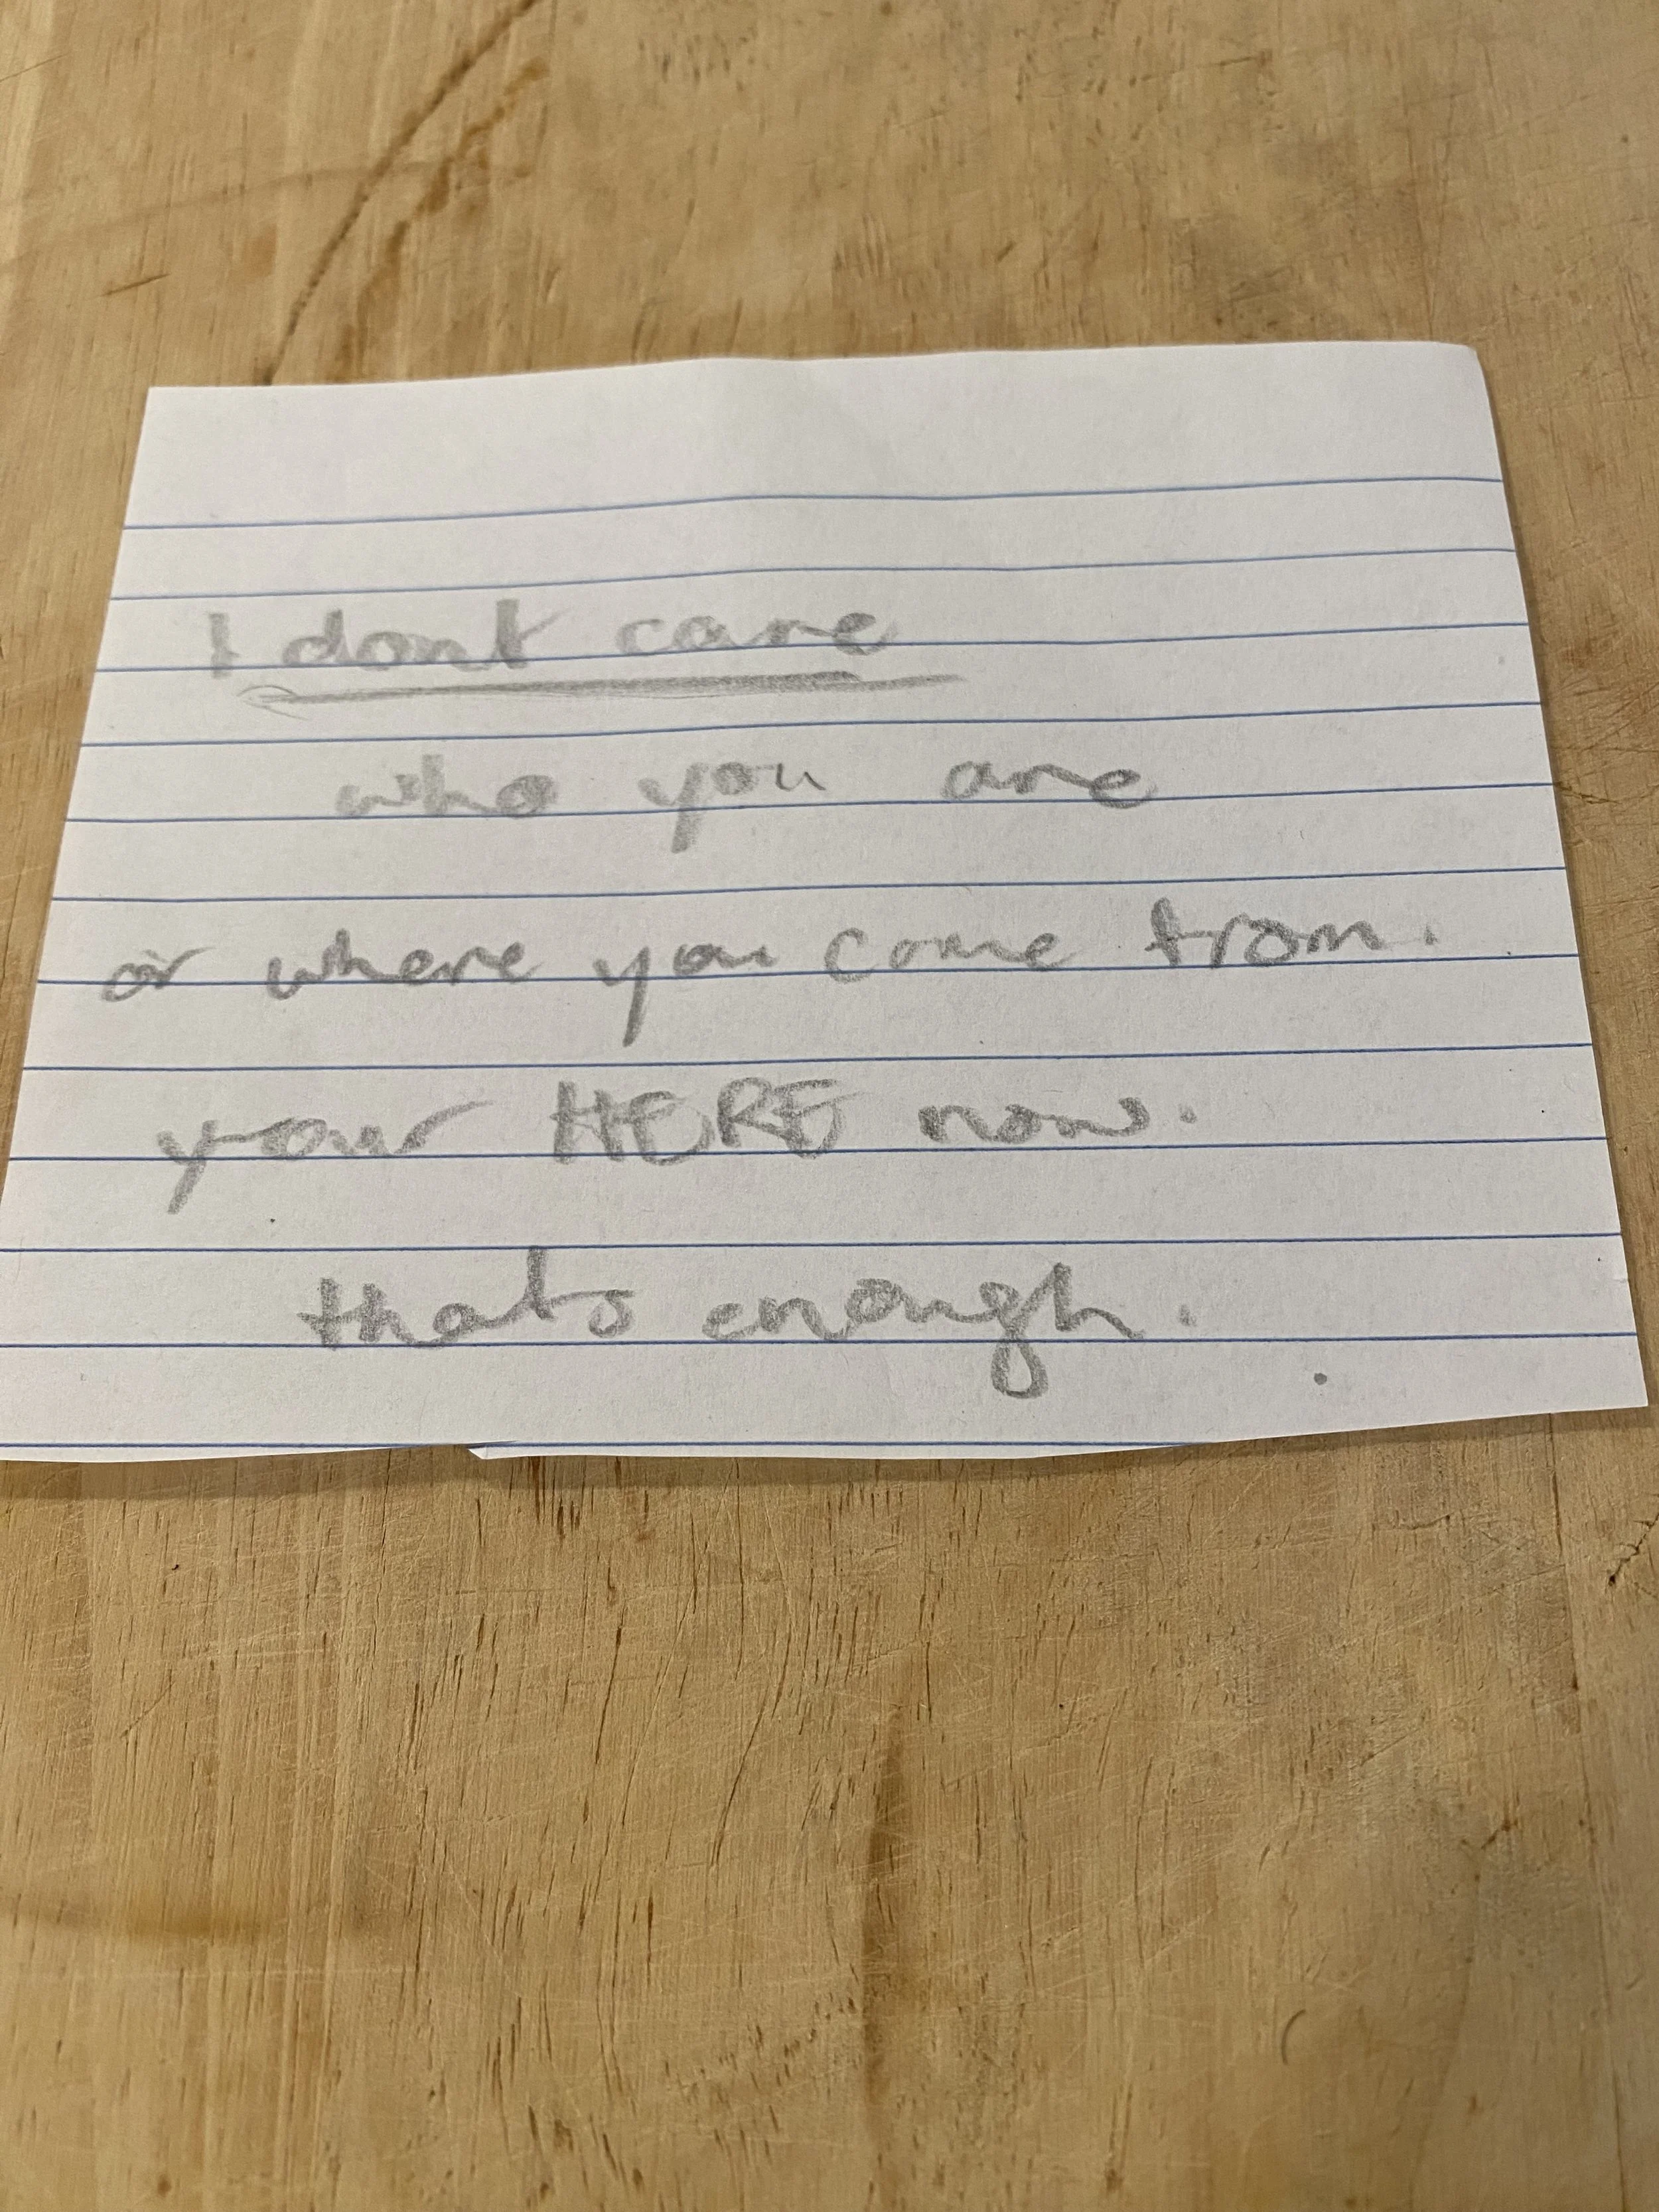 I dont care
who you are
or where you come from.
your HERE now.
thats enough.